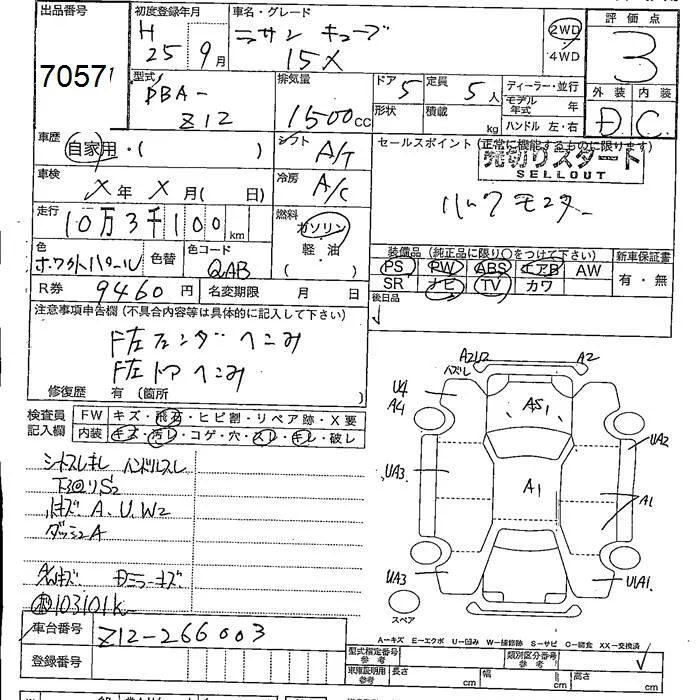 出品番号
70571
初度登録年月
H
25 9月
車名・グレード
ニサン キューブ
15X
2WD
4WD
評価点
3
外装 内装
D C
型式
DBA-
Z12
排気量
1500cc
ドア 5
定員 5人
形状
積載 kg
ディーラー・並行
モデル年式 年
ハンドル 左・右
車歴
自家用・( )
シフト
A/T
セールスポイント (正常に機能するものに限ります)
売切りスタート
SELLOUT
バックモニター
車検
X年 X月( 日)
冷房
A/C
走行
10万3千100km
燃料
ガソリン
軽・油
( )
色
ホワイトパール
色替
色コード
QAB
装備品 (純正品に限り○をつけて下さい)
新車保証書
PS PW ABS エアB AW
有・無
SR ナビ TV カワ
後日品
R券 9460円
名変期限 月 日
注意事項申告欄 (不具合内容等は具体的に記入して下さい)
F左フェンダーヘこみ
F左ドアヘこみ
修復歴 有 (箇所
検査員
記入欄
FW キズ・飛石・ヒビ割・リペア跡・X要
内装 キズ・汚レ・コゲ・穴・スレ・キレ・破レ
シートスレキレ ハンドルスレ
A、U、W2
ダッシュA
ドミラーキズ
103101k
A2U2
A2
ハズレ
U4
A4
AS1
UA2
UA3
A1
A1
UA3
UA1
スペア
A−キズ E−エクボ U−凹み W−補修跡 S−サビ C−腐食 XX−交換済
車台番号
Z12-266003
登録番号
型式指定番号
参考
類別区分番号
参考
車庫証明用
参考
長さ cm
幅 cm
高さ cm